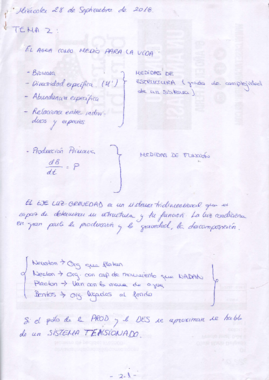 Miércoles 28 de Septiembre de 2016.
TEMA 2:
EL AGUA COMO MEDIO PARA LA VIDA
- Biomasa
- Diversidad específica (H')
- Abundancia específica
- Relaciones entre individuos y especies
MEDIDAS DE
ESTRUCTURA (grado de complejidad
de un sistema)
- Producción Primaria
dB/dt = P
MEDIDAS DE FUNCIÓN
EL EJE LUZ-GRAVEDAD es un sistema tridimensional que es
capaz de determinar su estructura y la función. La luz condiciona
en gran parte la producción y la gravedad, la descomposición.
Neuston → Org que flotan
Necton → Org con cap de movimiento que NADAN
Plancton → Van con la masa de agua
Bentos → Org ligados al fondo
Si el pico de la PROD y la DES se aproximan se habla
de un SISTEMA TENSIONADO.
- 2.1 -